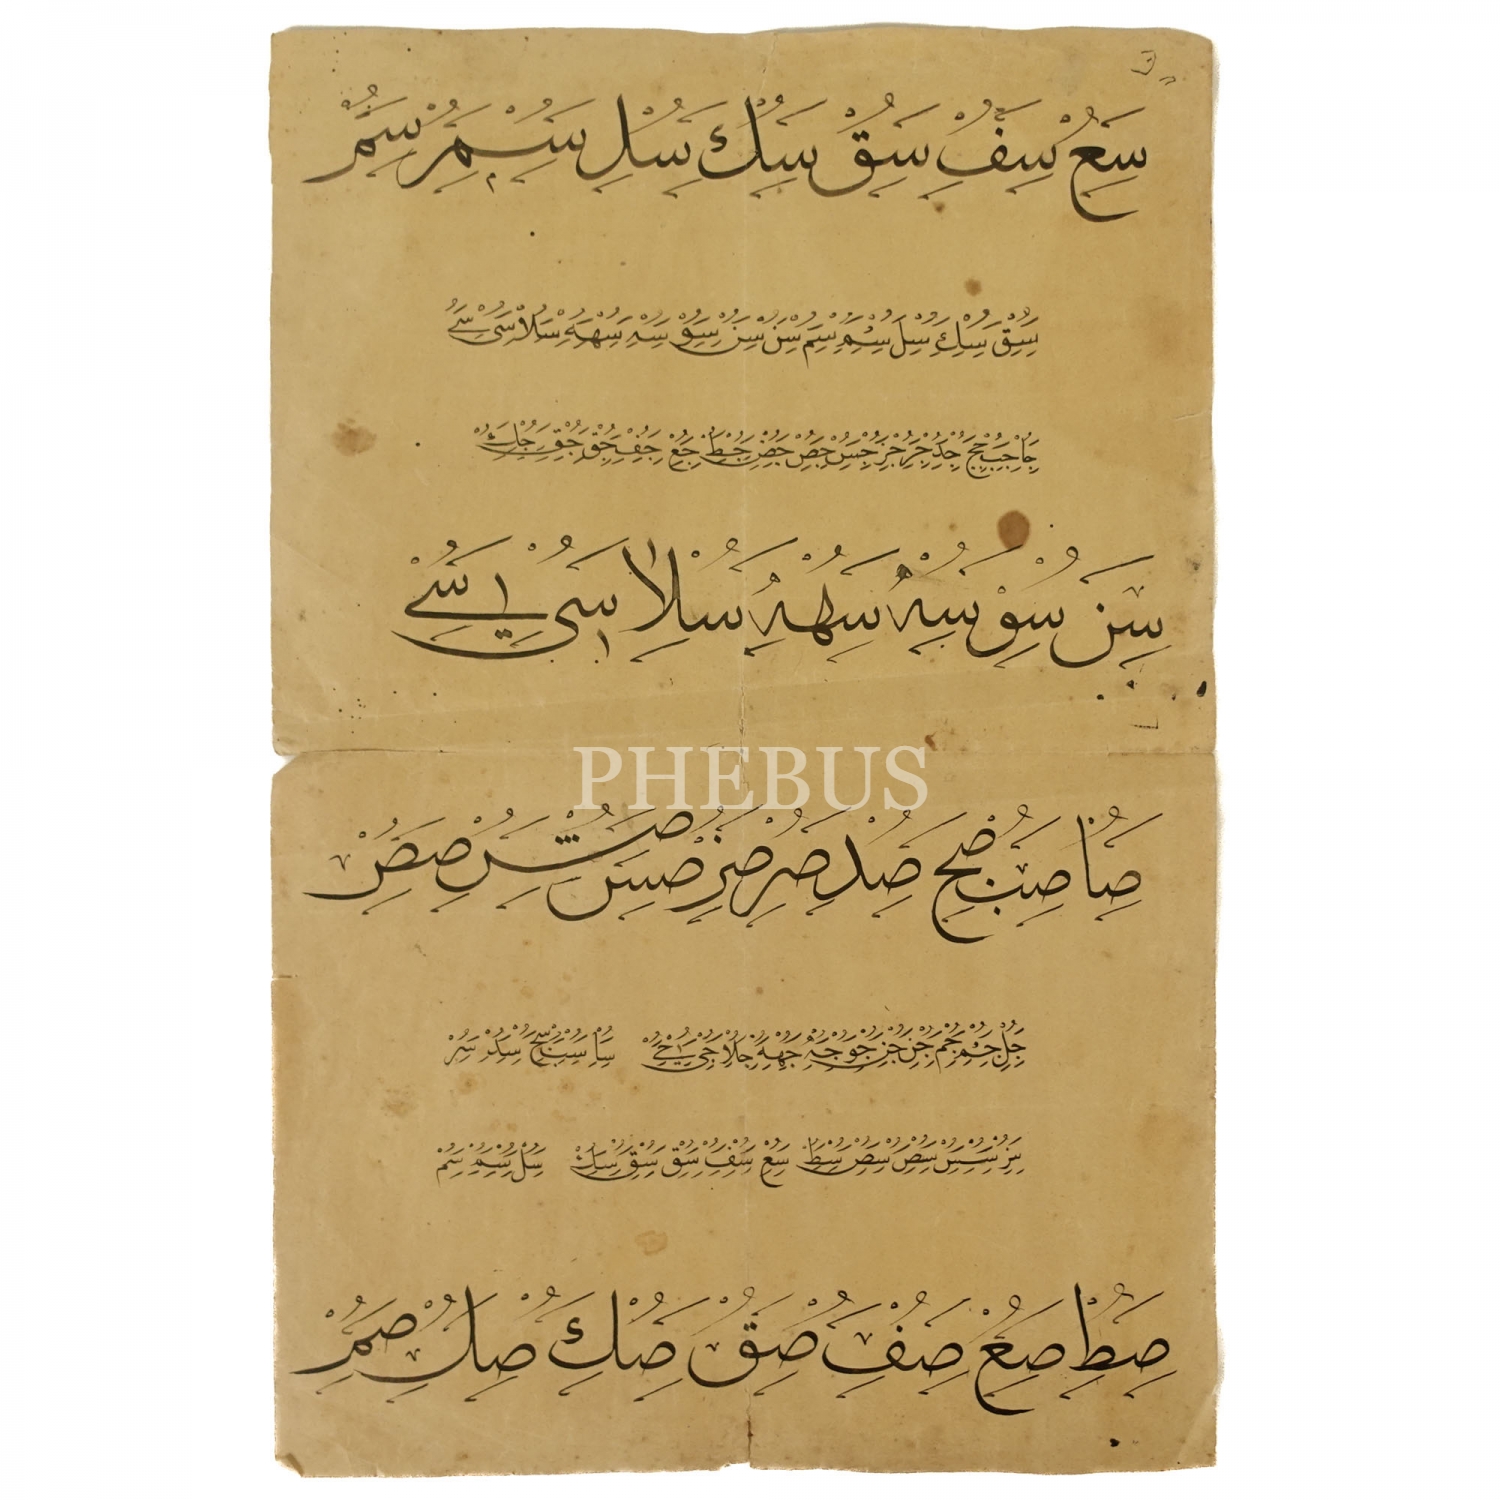 سع سف سق سك سل سم سم
سق سك سل سم سم سن سن سو سه سهه سلا سى سے
جا جب جج جد جر جز جس جص جض جط جع جف جق جق جك
سن سو سه سهه سلا سى سے
PHEBUS
صا صب صح صد صر صر صس صس صص
جل جم جم جن جن جو جه جهه جلا جى جے سا سب سج سد سر
سر سس سص سص سط سع سف سق سق سك سل سم سم
صط صع صف صق صك صل صم